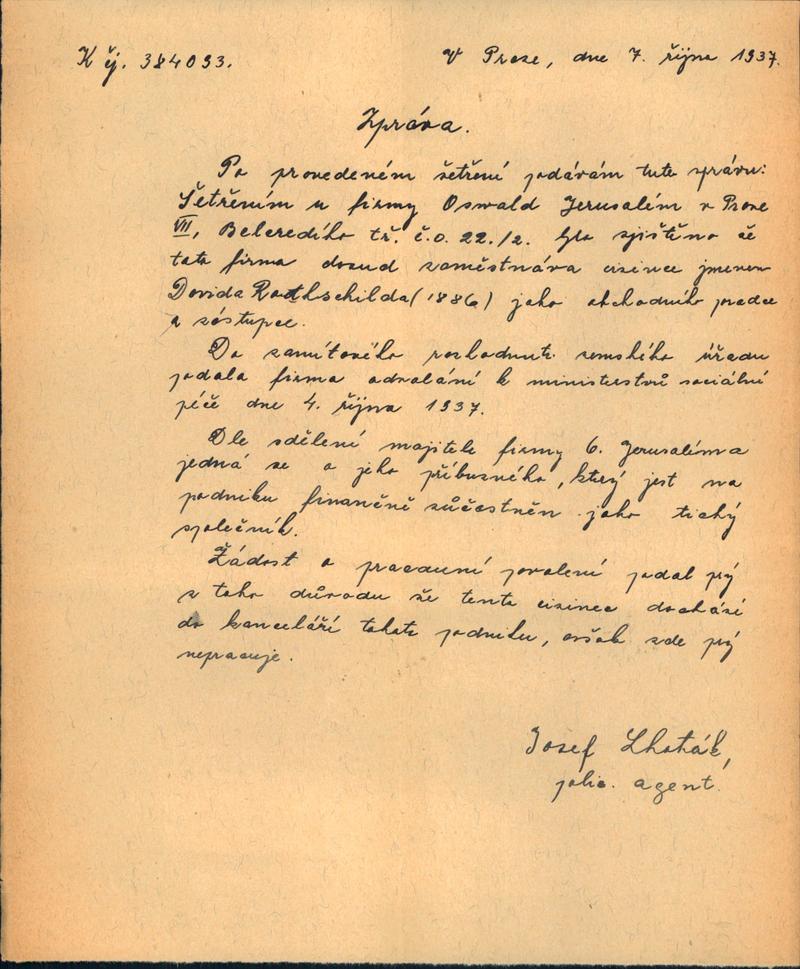 K čj. 384093.
V Praze, dne 7. října 1937.
Zpráva.
Po provedeném šetření podávám tuto zprávu:
Šetřením u firmy Oswald Jerusalém v Praze
VII, Belcrediho tř. č.o. 22./2. bylo zjištěno že
tato firma dosud zaměstnává cizince jmenem
Davida Rothschilda (1886) jako obchodního poradce
a zástupce.
Do zamítavého rozhodnutí zemského úřadu
podala firma odvolání k ministerstvů sociální
péče dne 4. října 1937.
Dle sdělení majitele firmy O. Jerusaléma
jedná se o jeho příbuzného, který jest na
podniku finančně súčastněn jako tichý
společník.
Žádost o pracovní povolení podal prý
z toho důvodu že tento cizinec dochází
do kanceláří tohoto podniku, avšak zde prý
nepracuje.
Josef Lhoták,
polic. agent.